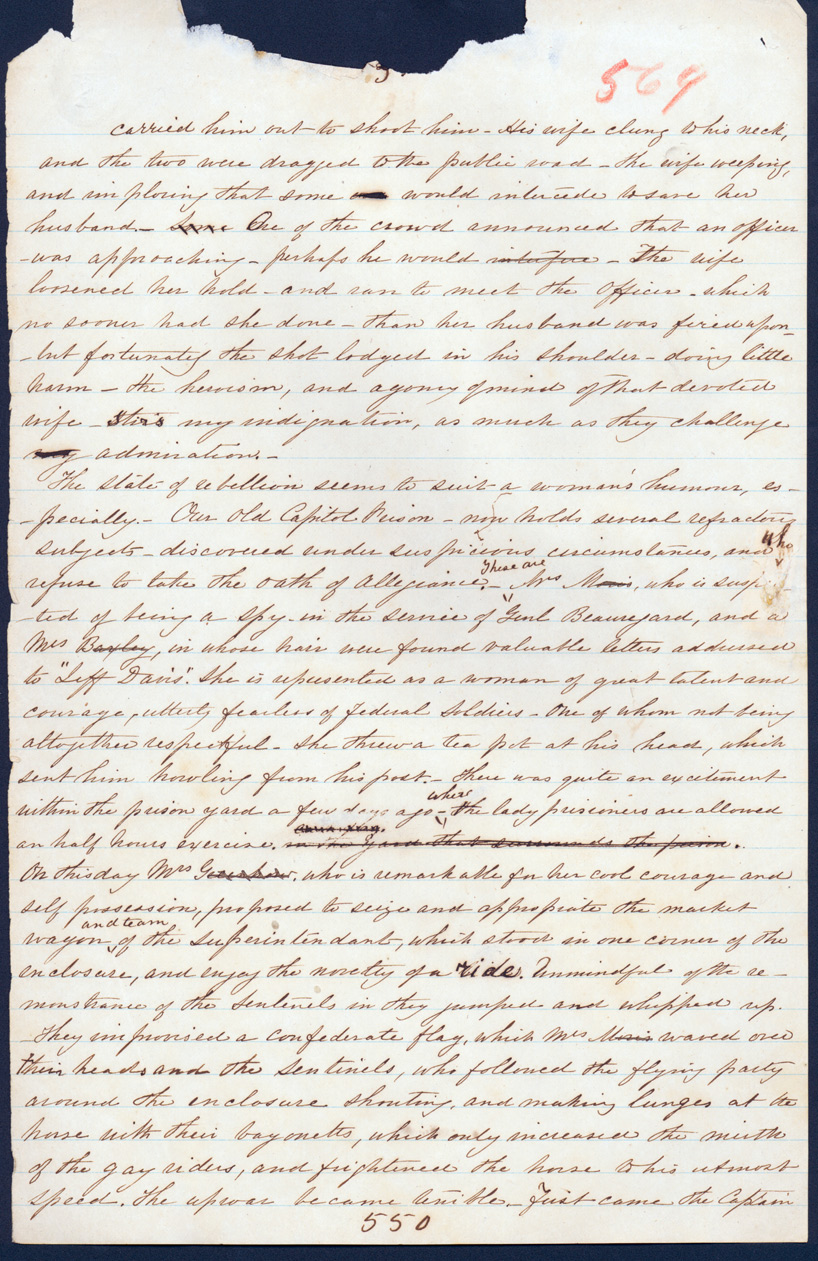 3
569
carried him out to shoot him - His wife clung to his neck,
and the two were dragged to the public road - the wife weeping,
and imploring that some would intercede to save her
husband. - Some One of the crowd announced that an officer
- was approaching - perhaps he would interfere - The wife
loosened her hold - and ran to meet the Officer - which
no sooner had she done - than her husband was fired upon -
- but fortunately the shot lodged in his shoulder - doing little
harm - the heroism, and agony of mind of that devoted
wife - stirs my indignation, as much as they challenge
my admiration. -
The state of rebellion seems to suit a woman's humour, es -
- pecially. - Our Old Capitol Prison - now holds several refractory
subjects - discovered under suspicious circumstances, and who
These are
refuse to take the oath of Allegiance. - Mrs Morris, who is suspic
ted of being a spy in the service of Genl Beauregard, and a
Mrs Baxley, in whose hair were found valuable letters addressed
to "Jeff Davis". She is represented as a woman of great talent and
courage, utterly fearless of Federal Soldiers - One of whom not being
altogether respectful - she threw a tea pot at his head, which
sent him howling from his post. - There was quite an excitement
where
within the prison yard a few days ago - the lady prisoners are allowed
an half hours exercise. in the yard that surrounds the prison.
On this day Mrs Greenhow. who is remarkable for her cool courage and
self possession, proposed to seize and appropiate the market
and team
wagon, of the superintendant, which stood in one corner of the
enclosure, and enjoy the novelty of a ride. Unmindful of the re -
monstrance of the sentinels in they jumped and whipped up.
- They improvised a confederate flag, which Mrs Morris waved over
their heads and the sentinels, who followed the flying party
around the enclosure shouting, and making lunges at the
horse with their bayonetts, which only increased the mirth
of the gay riders, and frightened the horse to his utmost
speed. The uproar became terrible. - Just came the Captain
550